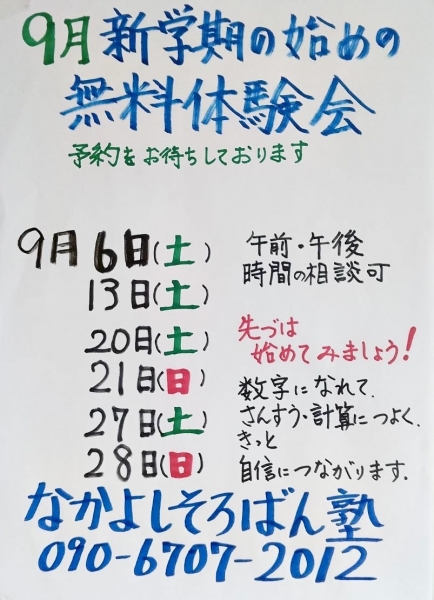 9月 新学期の始めの
無料体験会
予約をお待ちしております
9月 6日(土)
13日(土)
20日(土)
21日(日)
27日(土)
28日(日)
午前・午後
時間の相談可
先づは
始めてみましょう!
数字になれて、
さんすう・計算につよく、
きっと
自信につながります。
なかよしそろばん塾
090-6707-2012